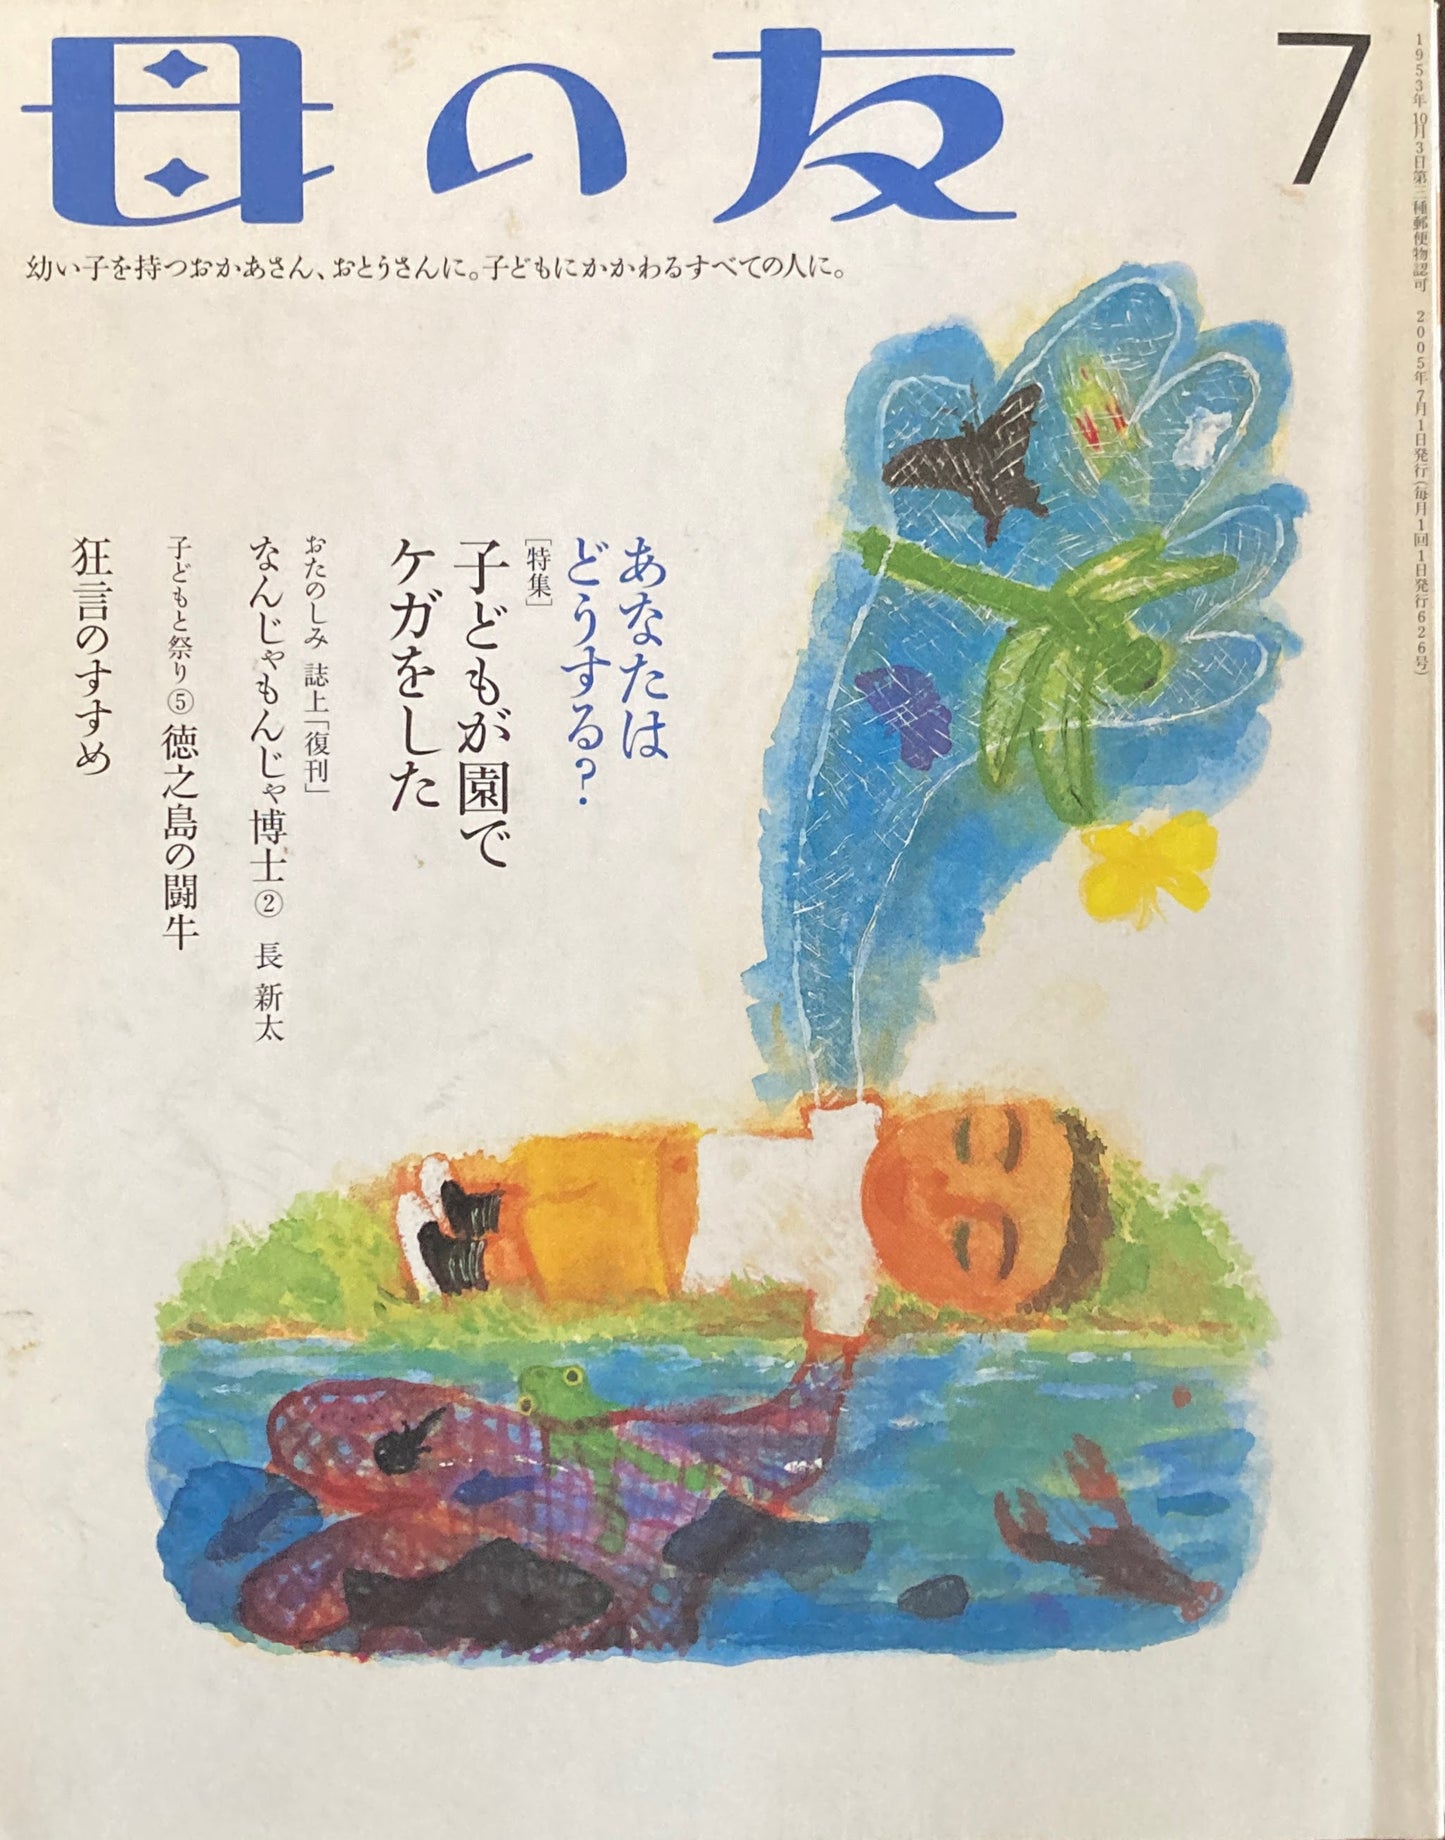 母の友
7
幼い子を持つおかあさん、おとうさんに。子どもにかかわるすべての人に。
1953年10月3日第三種郵便物認可 2005年7月1日発行(毎月1回1日発行626号)
あなたは
どうする?
[特集]
子どもが園で
ケガをした
おたのしみ 誌上「復刊」
なんじゃもんじゃ博士② 長 新太
子どもと祭り⑤徳之島の闘牛
狂言のすすめ